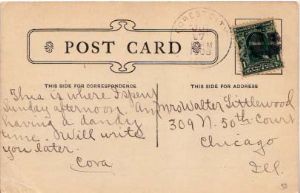 POST CARD
THIS SIDE FOR CORRESPONDENCE
THIS SIDE FOR ADDRESS
This is where I spent
Sunday afternoon. Am
having a dandy
time. Will write
you later.
Cora
Mrs Walter Littlewood
309 N. 50th Court
Chicago
Ill.